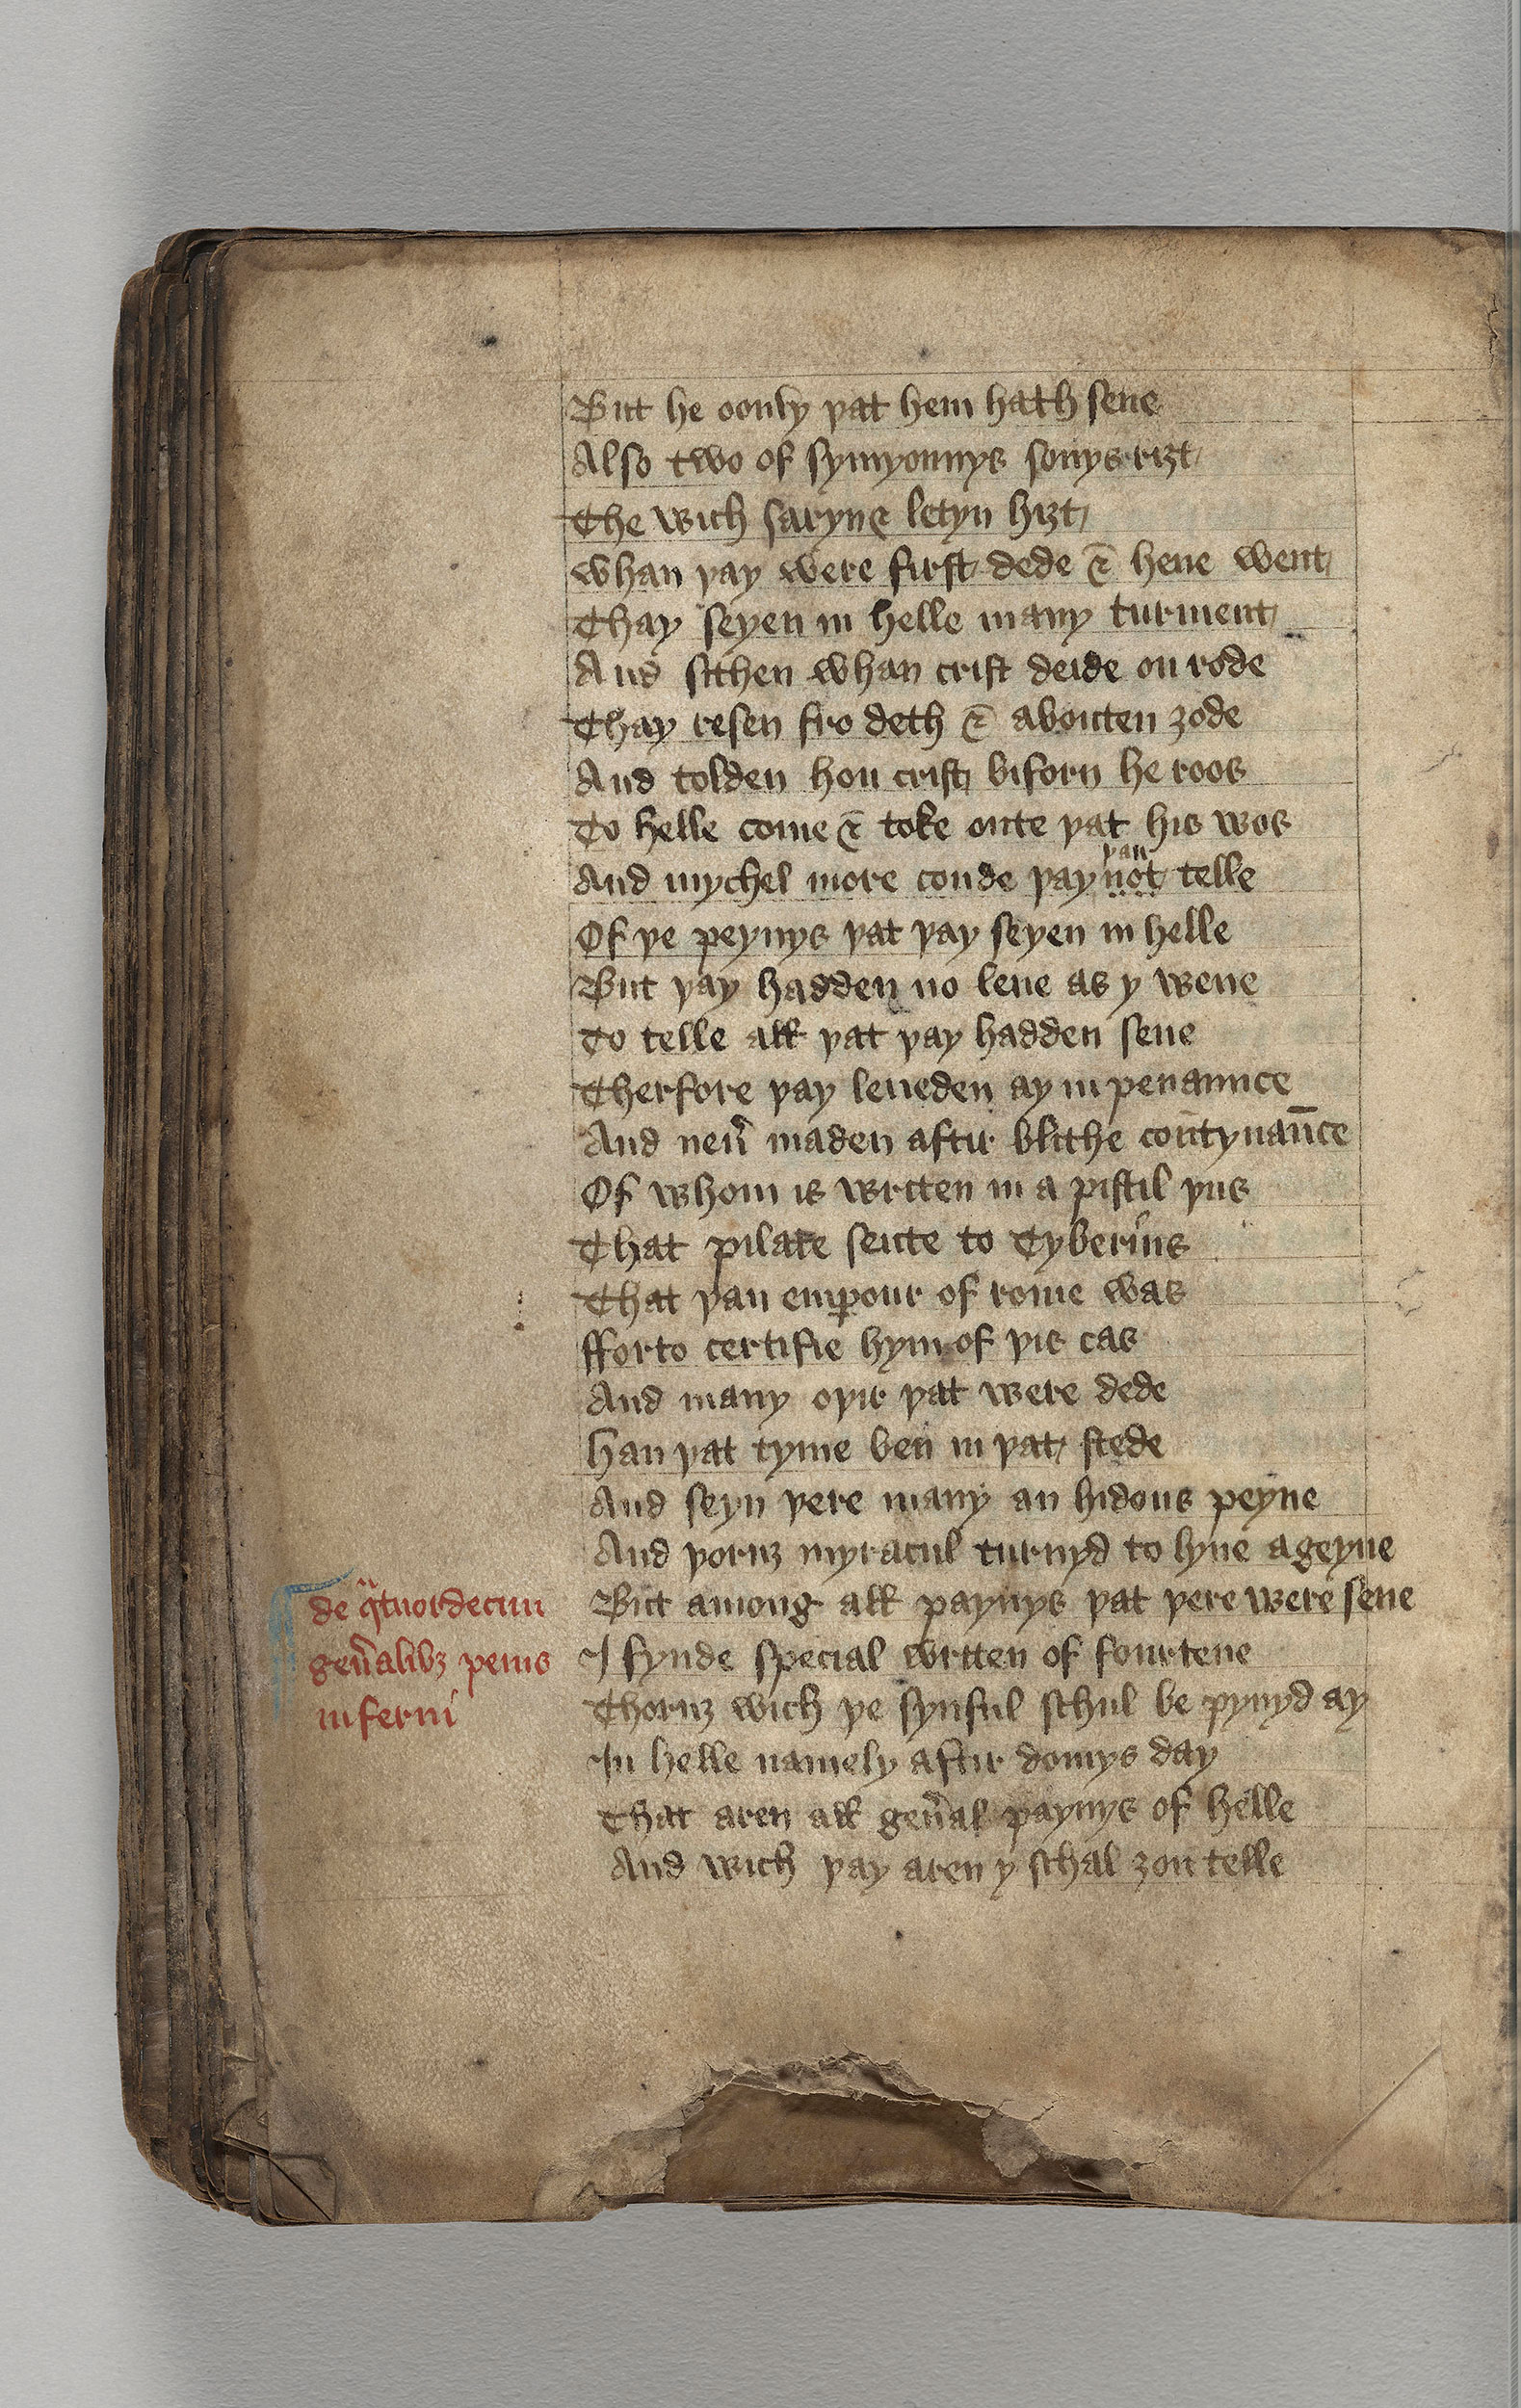 But he oonly þat hem hath sene
Also two of symyonnys sonys riȝt
The wich saryn & letyn hiȝt
Whan þay were first dede & hene went
Thay seyen in helle many turment
And sithen whan crist deide on rode
Thay resen fro deth & abouten ȝode
And tolden hou crist biforn he roos
To helle come & toke oute þat his wos
þan
And mychel more coude þay not telle
Of þe peynys þat þay seyen in helle
But þay hadden no leue as y wene
To telle all þat þay hadden sene
Therfore þay leueden ay in penaunce
And neu̕ maden aftir blithe contynau̅ce
Of whom is writen in a pistil þus
That pilate sente to Tyberius
That þan emꝑour of rome was
fforto certifie hym of þis cas
And many oþir þat were dede
Han þat tyme ben in þat stede
And seyn þere many an hidous peyne
And þoruȝ myracul turnyd to lyue ageyne
But among all paynys þat þere were sene
I fynde special writen of fourtene
Thoruȝ wich þe synful schul be pynyd ay
In helle namely aftir domys day
That aren all gen̕al paynys of helle
And wich þay aren y schal ȝou telle
de qͣtuordecim
gen̕alibȝ penis
inferni